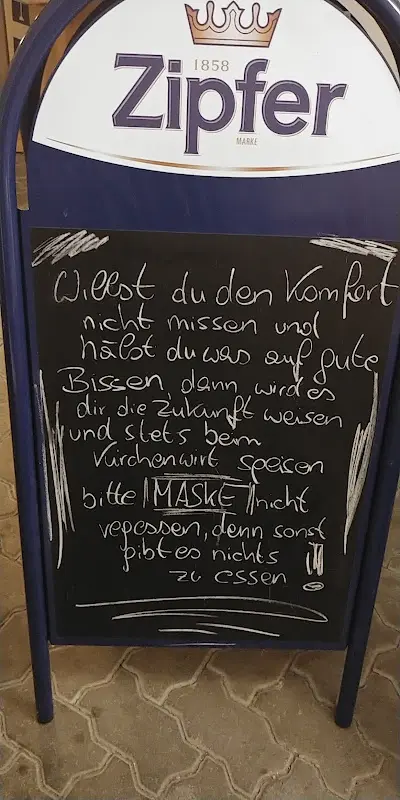 1858
Zipfer
MARKE
Willst du den Komfort
nicht missen und
hälst du was auf gute
Bissen, dann wird es
dir die Zukunft weisen
und stets beim
Kirchenwirt speisen
bitte MASKE nicht
vergessen, denn sonst
gibt es nichts
zu essen !